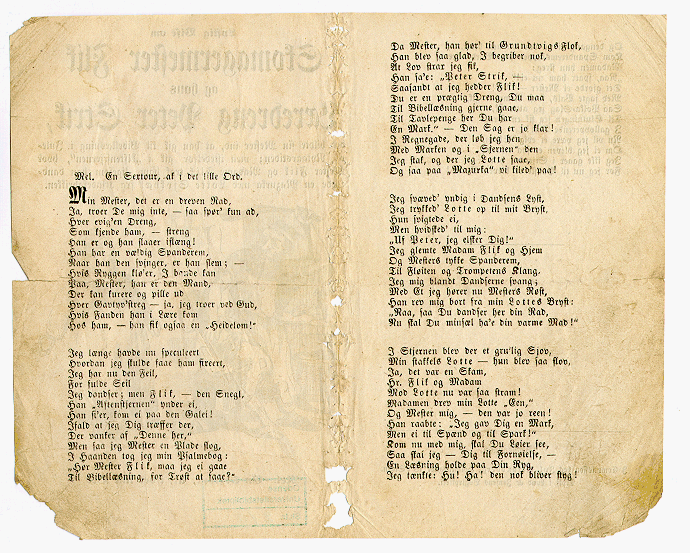 Mel. En Sextour, ak i det lille Ord.
Min Mester, det er en dreven Rad,
Ja, troer De mig inte, — saa spør' kun ad,
Hver evig'en Dreng,
Som kjende ham, — streng
Han er og han slaaer iflæng!
Han har en væl'dig Spanderem,
Naar han den svinger, er han slem; —
Hvis Ryggen klø'er, I bande kan
Paa, Mester, han er den Mand,
Der kan kurere og pille ud
Hver Gavtyv'streg — ja, jeg troer ved Gud,
Hvis Fanden han i Lære kom
Hos ham, — han fik ogsaa en „Heidelom!"
Jeg længe havde nu speculeert
Hvordan jeg skulde faae ham fixeert,
Jeg har nu den Feil,
For fulde Seil
Jeg dandser; men Flik, — den Snegl,
Han „Aftenstjernen" ynder ei,
Han si'er, kom ei paa den Galei!
Ifald at jeg Dig træffer der,
Der vanker af „Denne her,"
Men saa jeg Mester en Plade slog,
I Haanden tog jeg min Psalmebog:
„Hør Mester Flik, maa jeg ei gaae
Til Bibellæsning, for Trøst at faae?"
Da Mester, han hør' til Grundtvigs Flok,
Han blev saa glad, I begriber nok,
At Lov strax jeg fik,
Han sa'e: „Peter Strik, —
Saasandt at jeg hedder Flik!
Du er en prægtig Dreng, Du maa
Til Bibellæsning gjerne gaae,
Til Tavlepenge her Du har
En Mark." — Den Sag er jo klar!
I Regnegade, der løb jeg hen
Med Marken og i „Stjernen" den
Jeg stak, og der jeg Lotte saae,
Og saa paa „Mazurka" vi kiled' paa!
Jeg svæved' yndig i Dandsens Lyst,
Jeg trykked' Lotte op til mit Bryst,
Hun svigtede ei,
Men hvidsked' til mig:
„Uf Peter, jeg elsker Dig!"
Jeg glemte Madam Flik og Hjem
Og Mesters tykke Spanderem,
Til Fløiten og Trompetens Klang.
Jeg mig blandt Dandserne svang;
Med Et jeg hører nu Mesters Røst,
Han rev mig bort fra min Lottes Bryst:
„Naa, saa Du dandser her din Rad,
Nu skal Du minsæl ha'e din varme Mad!"
I Stjernen blev der et gru'lig Sjov,
Min stakkels Lotte — hun blev saa flov,
Ja, det var en Skam,
Hr. Flik og Madam
Mod Lotte nu var saa stram!
Madamen drev min Lotte „Een,"
Og Mester mig, — den var jo reen!
Han raabte: „Jeg gav Dig en Mark,
Men ei til Spænd og til Spark!"
Kom nu med mig, skal Du Løier see,
Saa skal jeg — Dig til Fornøielse, —
En Læsning holde paa Din Ryg,
Jeg tænkte: Hu! Ha! den nok bliver styg!